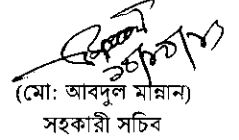 (মো: আবদুল মান্নান)
সহকারী সচিব